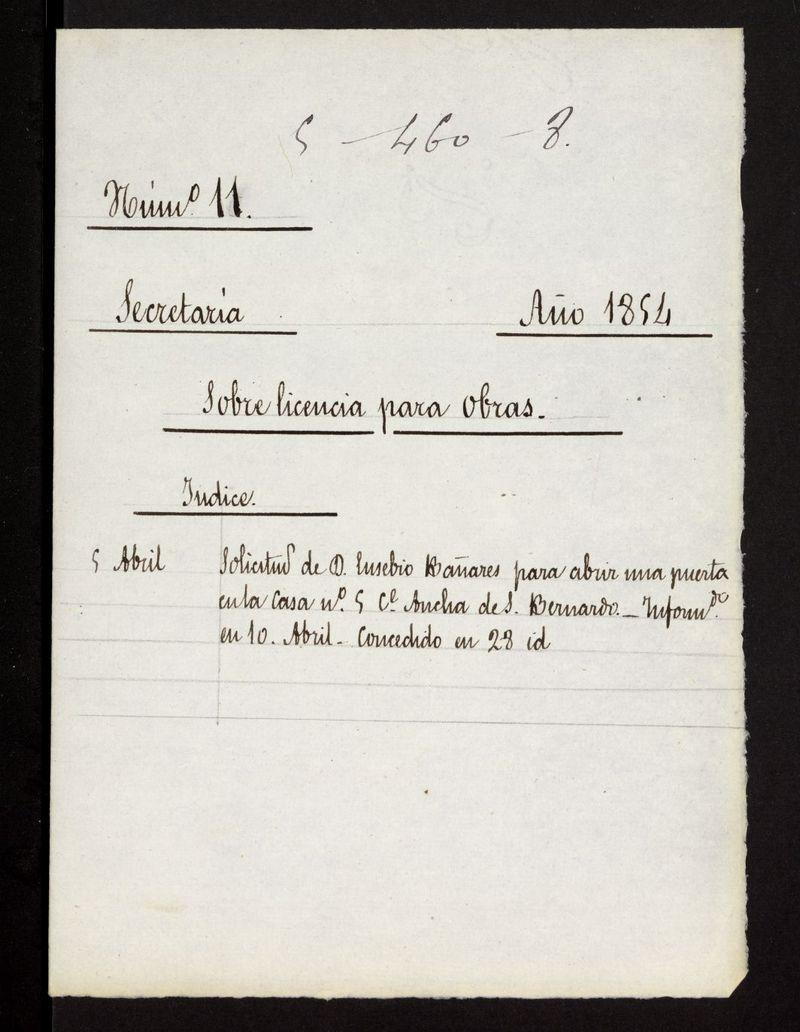 5 - 460 - 8.
Núm.º 11.
Secretaría
Año 1854
Sobre licencia para obras.
Indice.
5 Abril Solicitud de D. Eusebio Bañares para abrir una puerta
en la Casa n.º 5 C.e Ancha de S. Bernardo. - Inform.do
en 10. Abril - Concedido en 28 id